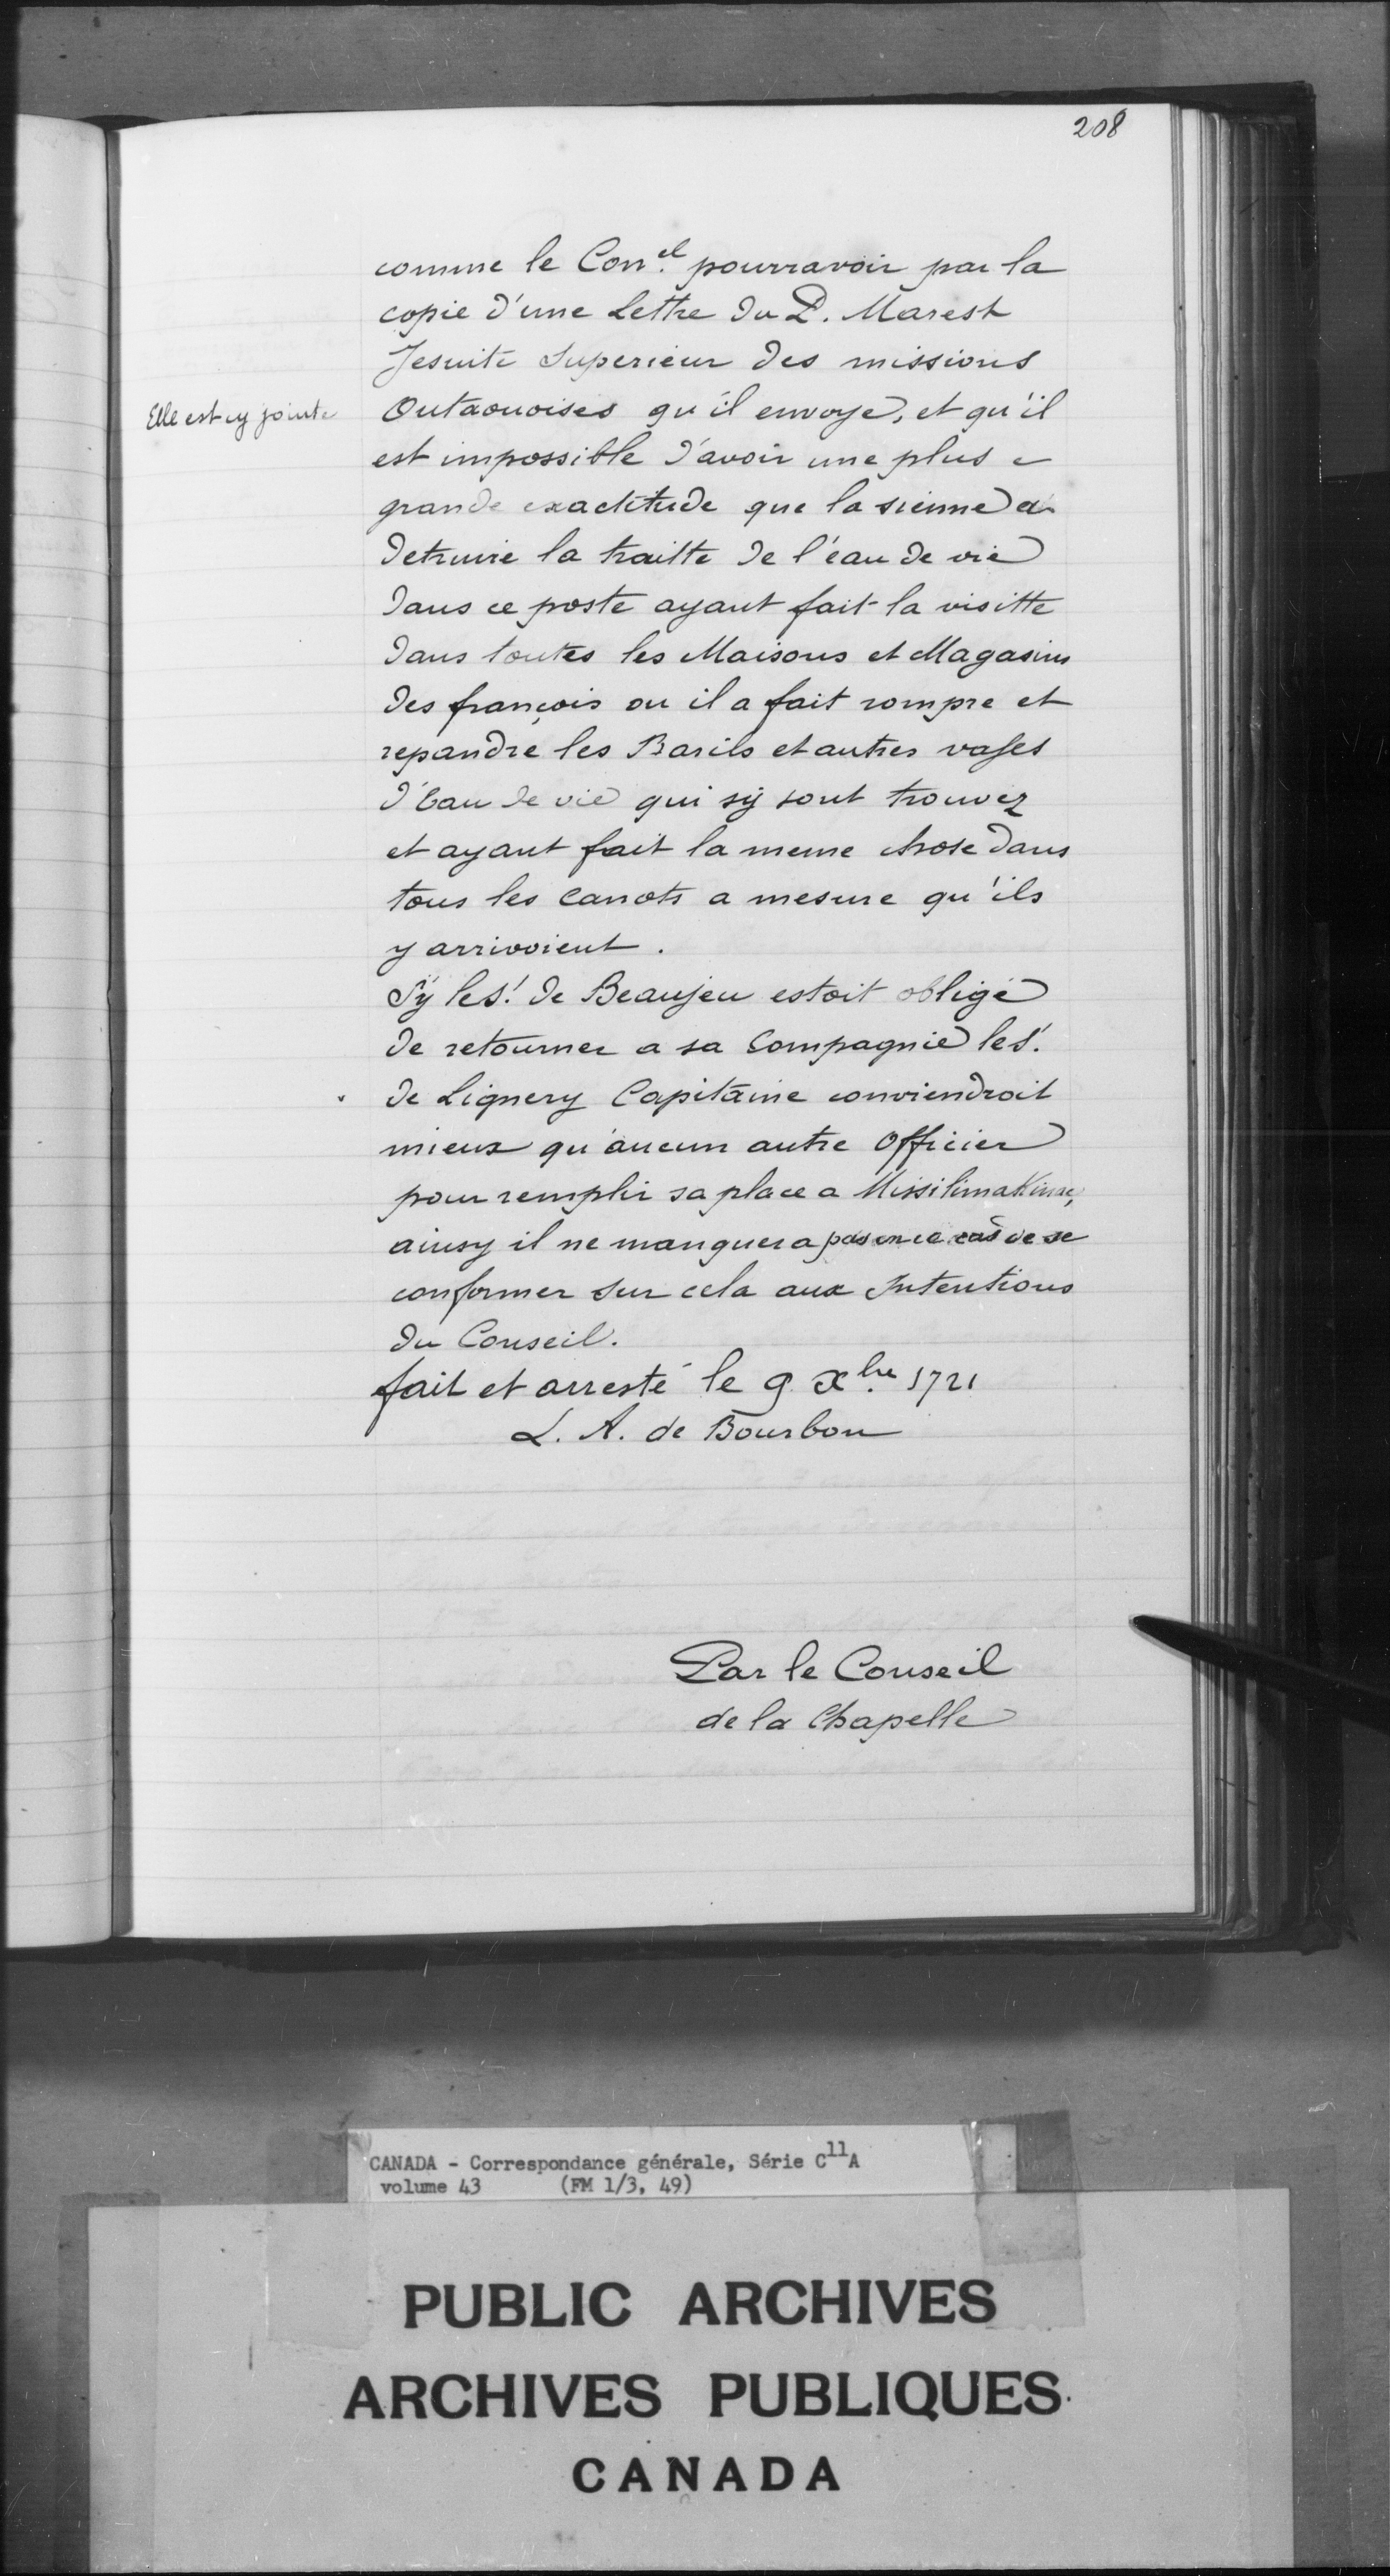 208
comme le Con.el pourravoir par la
copie d'une Lettre du P. Marest
Jesuite Superieur des missions
Elle est cy jointe
Outaouoises qu'il envoye, et qu'il
est impossible d'avoir une plus
grande exactitude que la sienne a
detruire la traitte de l'eau de vie
dans ce poste ayant fait la visitte
dans toutes les Maisons et Magasins
des françois ou il a fait rompre et
repandre les Barils et autres vases
d'Eau de vie qui sÿ sont trouvez
et ayant fait la meme chose dans
tous les Canots a mesure qu'ils
y arrivoient.
Sÿ le S.r de Beaujeu estoit obligé
de retourner a sa Compagnie le S.r
de Lignery Capitaine conviendroit
mieux qu'aucun autre Officier
pour remplir sa place a Missilimakinac,
ainsy il ne manquera pas en ce cas de se
conformer sur cela aux Intentions
du Conseil.
fait et arresté le 9 Xbre 1721
L. A. de Bourbon
Par le Conseil
de la Chapelle
CANADA - Correspondance générale, Série C11A
volume 43 (FM 1/3, 49)
PUBLIC ARCHIVES
ARCHIVES PUBLIQUES
CANADA